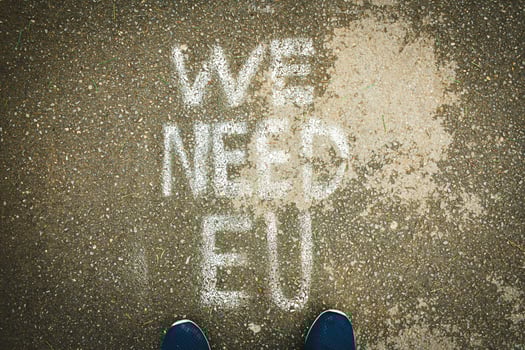 WE
NEED
EU